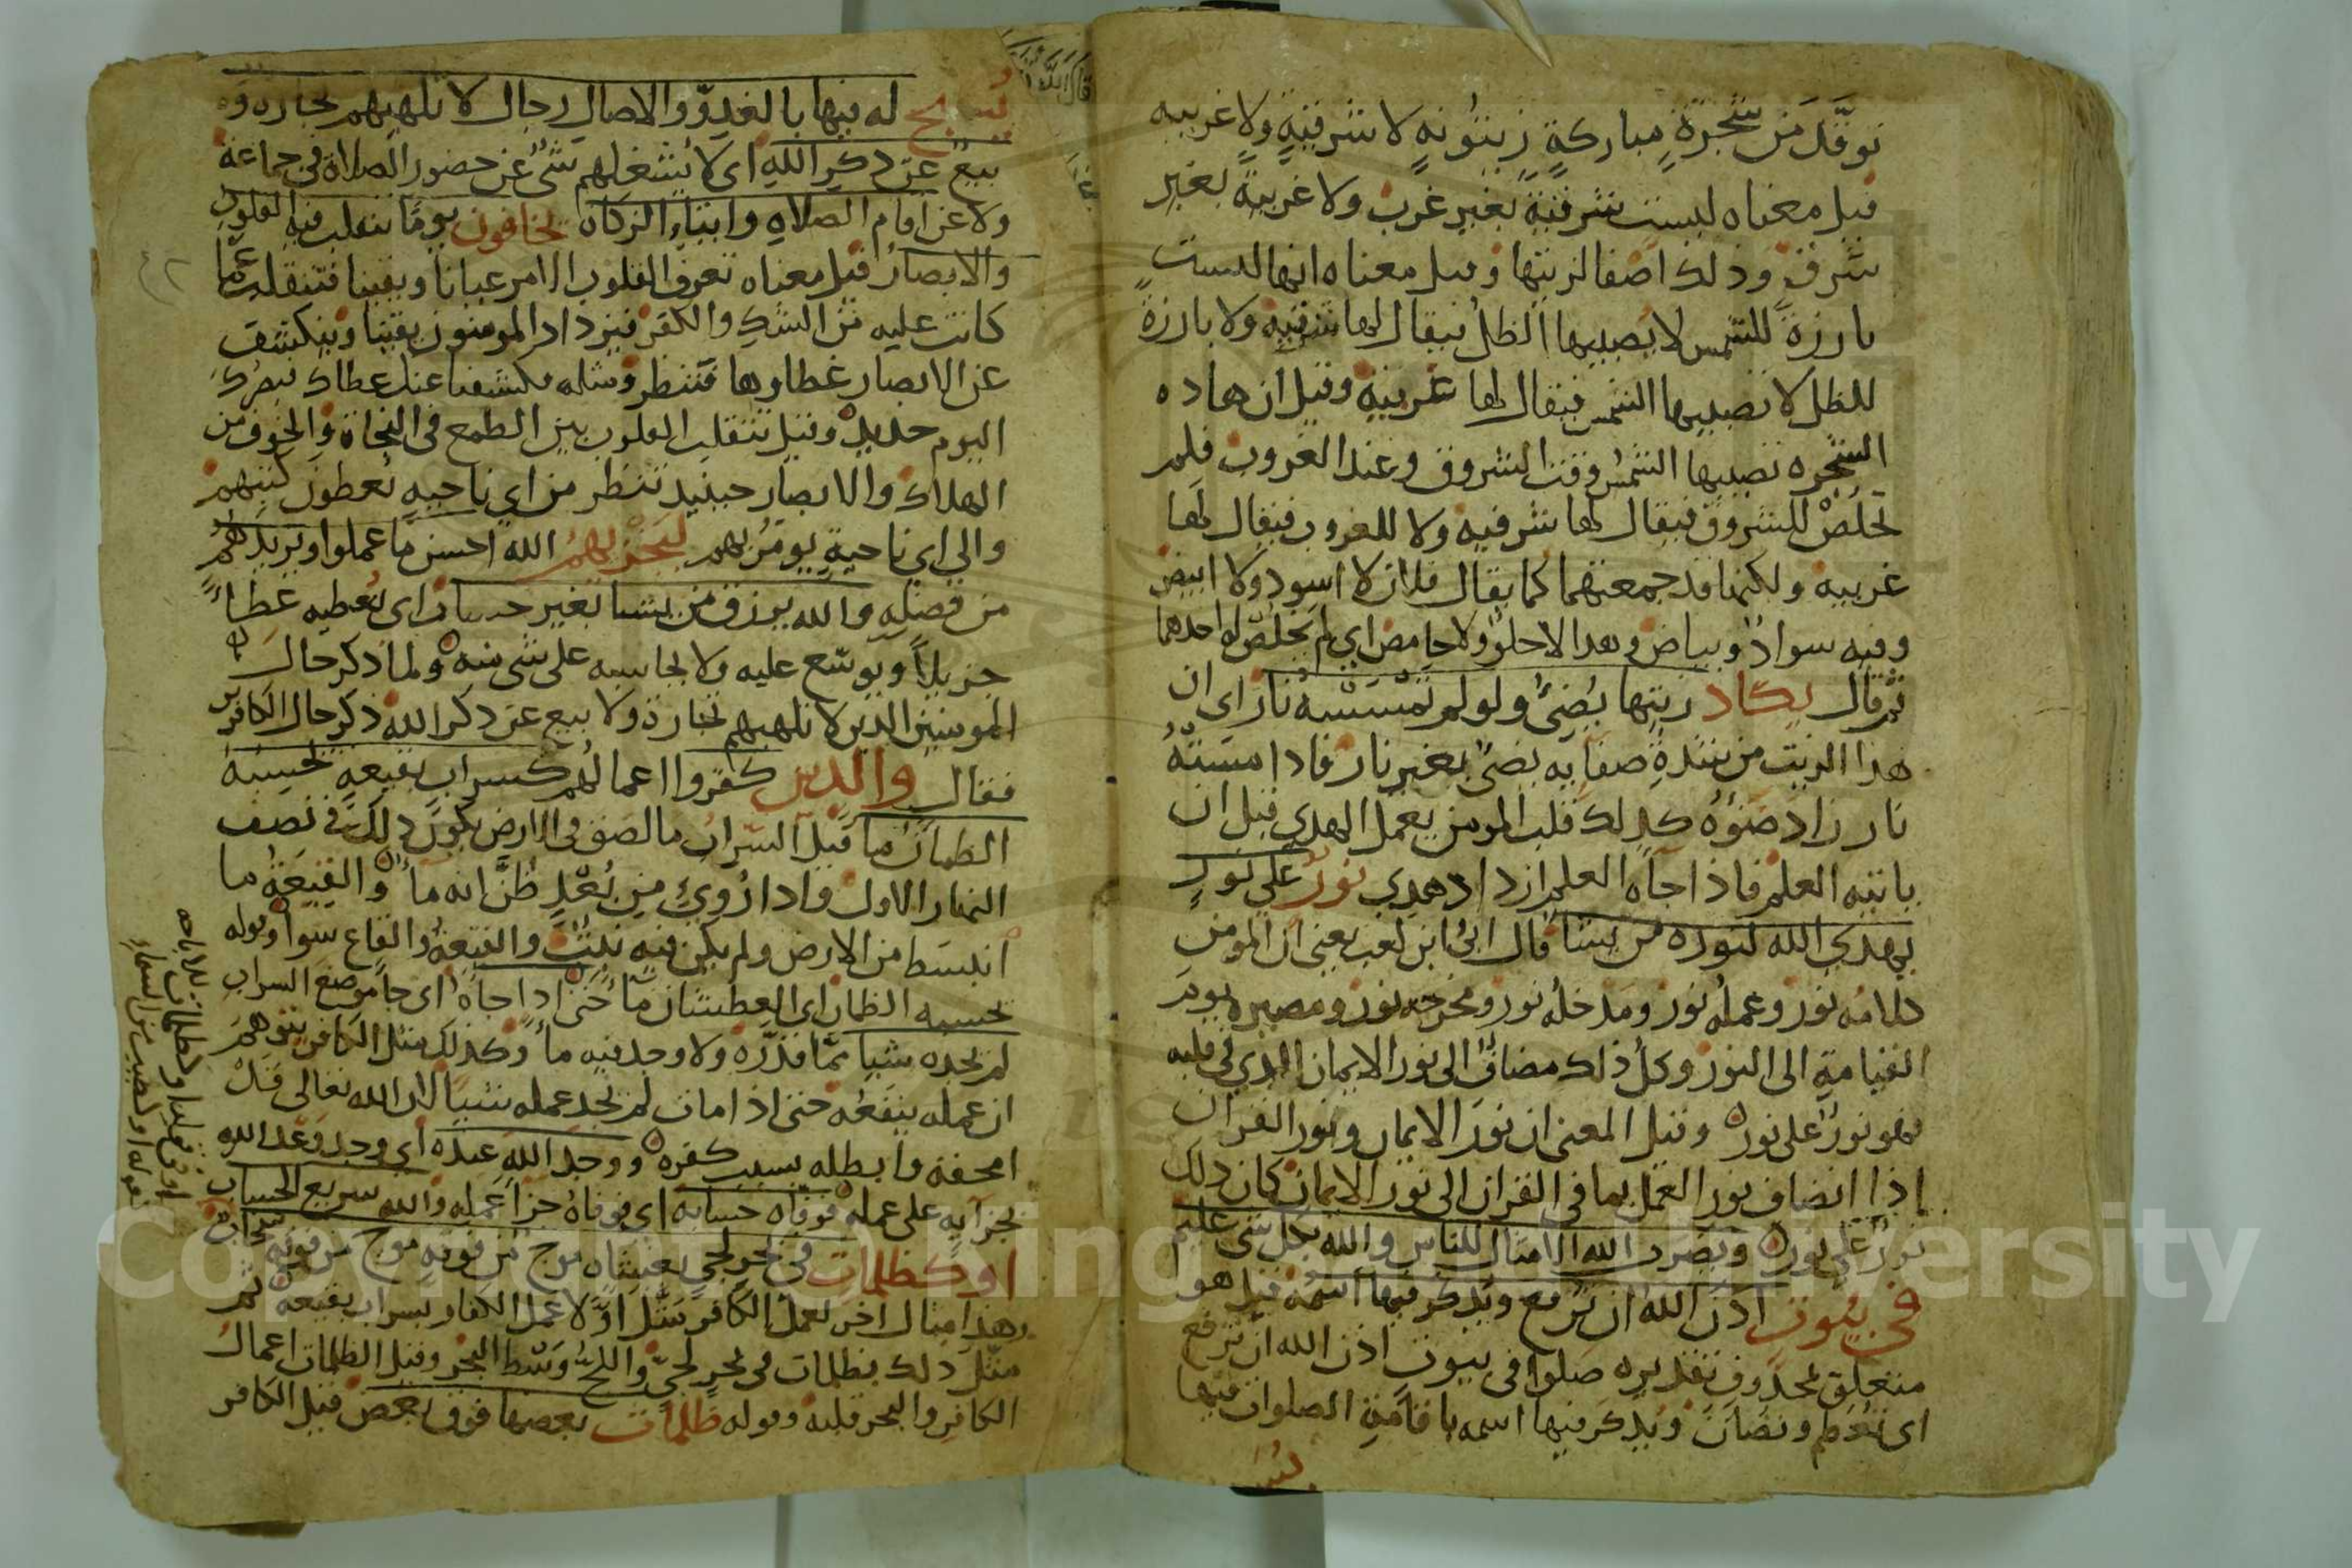 توقد من شجرة مباركة زيتونه لا شرقية ولا غربيه
قيل معناه ليست شرقية بغير غرب ولا غربية بغير
شرق وذلك اصفا لزيتها وقيل معناه انها ليست
بارزة للشمس لا يصيبها الظل فيقال لها شرقيه ولا بارزة
للظل لا تصيبها الشمس فيقال لها غربية وقيل ان هاده
الشجره تصيبها الشمس وقت الشروق وعند الغروب فلم
تخلص للشروق فيقال لها شرقيه ولا للغروب فيقال لها
غربيه ولكنها قد جمعتهما كما يقال فلان لا اسود ولا ابيض
وفيه سواد وبياض وهدا لا حلو ولا حامض اي لم يخلص لواحدهما
ثم قال يكاد زيتها يضيئ ولو لم تمسسه نار اي ان
هذا الزيت من شدة صفايه يضئ بغير نار فاذا مسته
نار زاد ضوءه كذلك قلب المومن يعمل الهدي قبل ان
ياتيه العلم فاذا جاه العلم ازداد هدي نور علي نور
يهدي الله لنوره من يشا قال ابي ابن كعب يعني ان المومن
كلامه نور وعمله نور ومدخله نور ومخرجه نور ومصيره يوم
القيامة الى النور وكل ذلك مضاف الى نور الايمان الذي في قلبه
فهو نور على نور وقيل المعنى ان نور الايمان ونور القران
اذا انضاف نور العمل بما في القران الى نور الايمان كان ذلك
نور على نور ويضرب الله الامثال للناس والله بكل شي عليم
في بيوت اذن الله ان ترفع ويذكر فيها اسمه قيل هوا
متعلق بمحذوف تقديره صلوا في بيوت اذن الله ان ترفع
اي تعظم وتصان ويذكر فيها اسمه باقامة الصلوات فيها
يسبح له فيها بالغدو والاصال رجال لا تلهيهم تجاره ولا
بيع عن ذكر الله اي لا يشغلهم شئ عن حضور الصلاة في جماعة
ولا عن اقام الصلاه وايتاء الزكاه يخافون يوما تتقلب فيه القلوب
والابصار قيل معناه تعرف القلوب الامر عيانا ويقينا فتنقلب عما
كانت عليه من الشك والكفر فيزداد المومنون يقينا وينكشف
عن الابصار غطاوها فتنظر ومثله فكشفنا عنك غطاك فبصرك
اليوم حديد وقيل تتقلب القلوب بين الطمع في النجاة والخوف من
الهلاك والابصار حينيد تنظر من اي ناحيه يعطون كتبهم
والي اي ناحية يومر بهم ليجزيهم الله احسن ما عملوا ويزيدهم
من فضله والله يرزق من يشا بغير حساب اي يعطيه عطاء
جزيلا ويوسع عليه ولا يحاسبه على شي منه ولما ذكر حال
المومنين الذين لا تلهيهم تجارة ولا بيع عن ذكر الله ذكر حال الكافرين
فقال والدين كفروا اعمالهم كسراب بقيعه يحسبه
الظمان ما قيل السراب ما لصق في الارض يكون ذلك في نصف
النهار الاول واذا روي من بعد ظن انه ماء والقيعة ما
انبسط من الارض ولم يكن فيه نبت والقيعة والقاع سوا وقوله
يحسبه الظمان اي العطشان ما حتى اذا جاه اي جا موضع السراب
لم يجده شيا مما قدره ولا وجد فيه ماء وكذلك مثل الكافر يتوهم
ان عمله ينفعه حتى اذا مات لم يجد عمله شيا لان الله تعالى قد
امحقه وابطله بسبب كفره ووجد الله عنده اي وجد وعد الله
بجزايه على عمله فوفاه حسابه اي فوفاه جزا عمله والله سريع الحساب
او كظلمات في بحر لجي يغشاه موج من فوقه موج من فوقه سحاب
وهذا مثال اخر لعمل الكافر مثل اولا عمل الكفار بسراب بقيعة ثم
مثل ذلك بظلمات في بحر لجي واللج وسط البحر وقيل الظلمات اعمال
الكافر والبحر قلبه وقوله ظلمات بعضها فوق بعض قيل الكافر